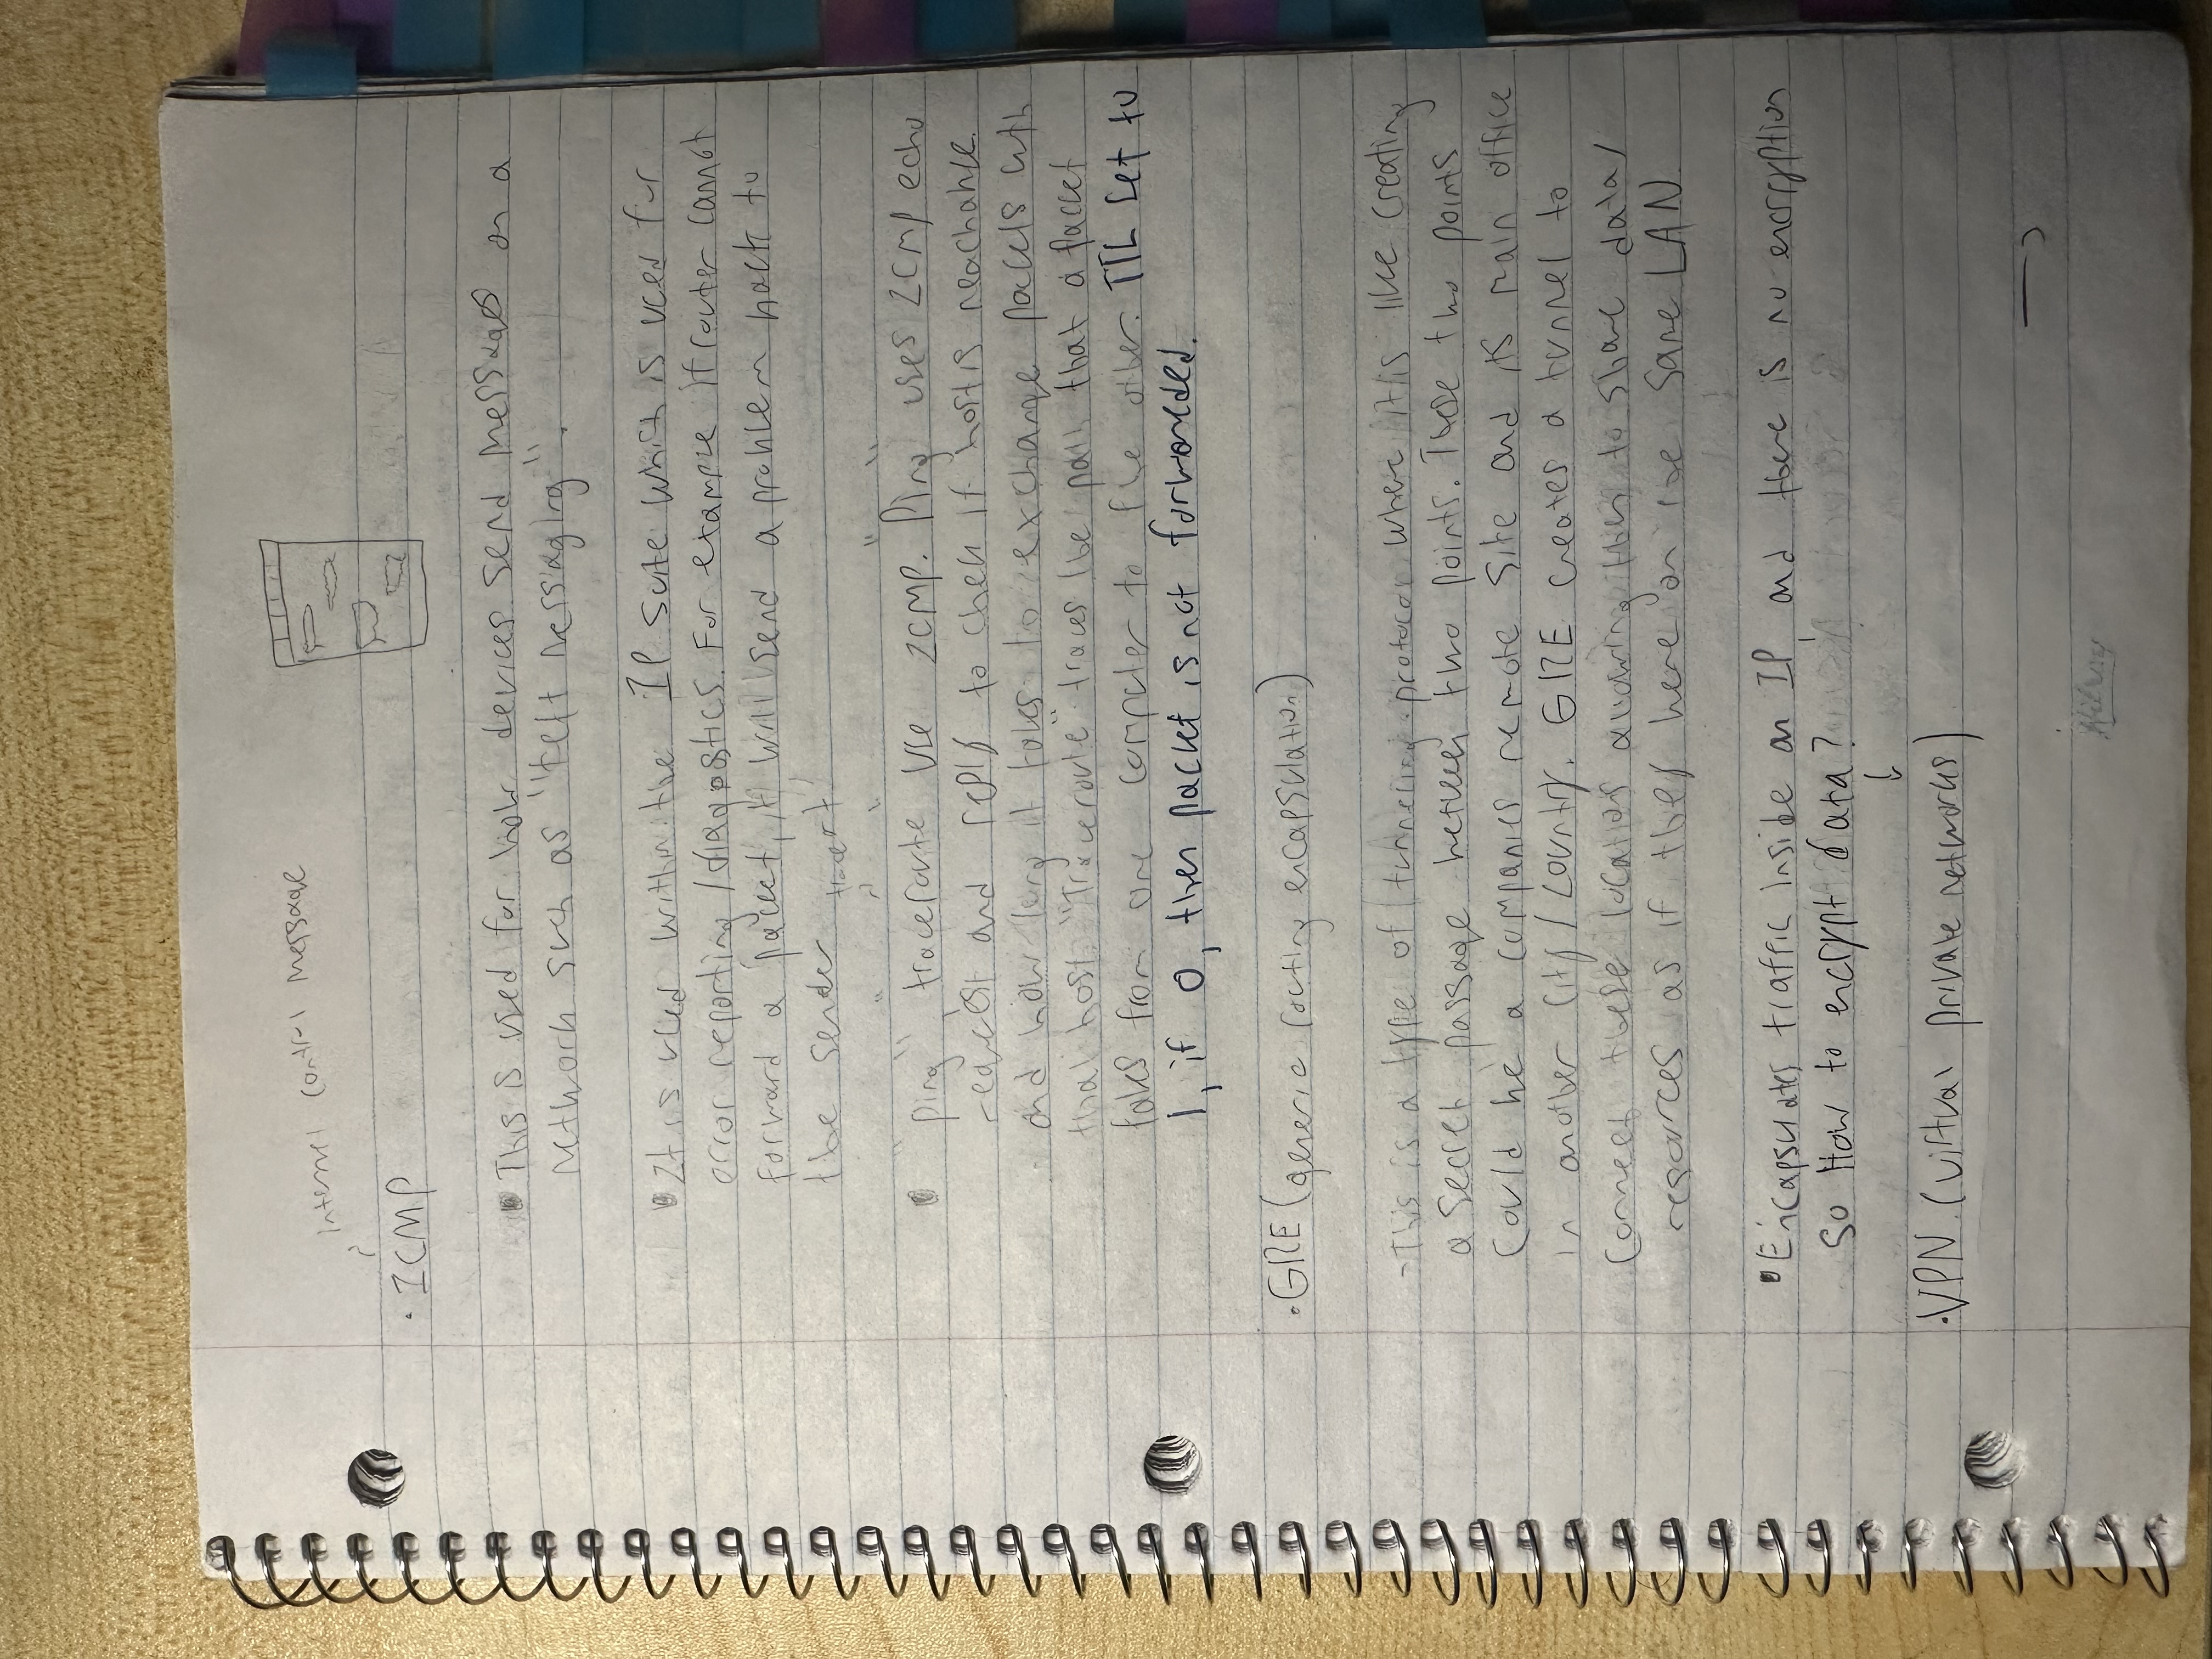 Internet Control Message
• ICMP
• This is used for how devices send messages on a
network such as "text messaging".
• It is used within the IP suite which is used for
error reporting/diagnostics. For example if router cannot
forward a packet, it will send a problem back to
the sender
tracert
• "Ping", "traceroute" use ICMP. "Ping" uses ICMP echo
request and reply to check if host is reachable
and how long it takes to exchange packets with
that host. "Traceroute" traces the path that a packet
takes from one computer to the other. TTL set to
1, if 0, then packet is not forwarded.
• GRE (generic routing encapsulation)
- This is a type of tunneling protocol where it is like creating
a secret passage between two points. These two points
could be a companies remote site and its main office
in another city/country. GRE creates a tunnel to
connect these locations allowing them to share data/
resources as if they were on the same LAN
• Encapsulates traffic inside an IP, and there is no encryption
So How to encrypt data?
• VPN (virtual private networks)